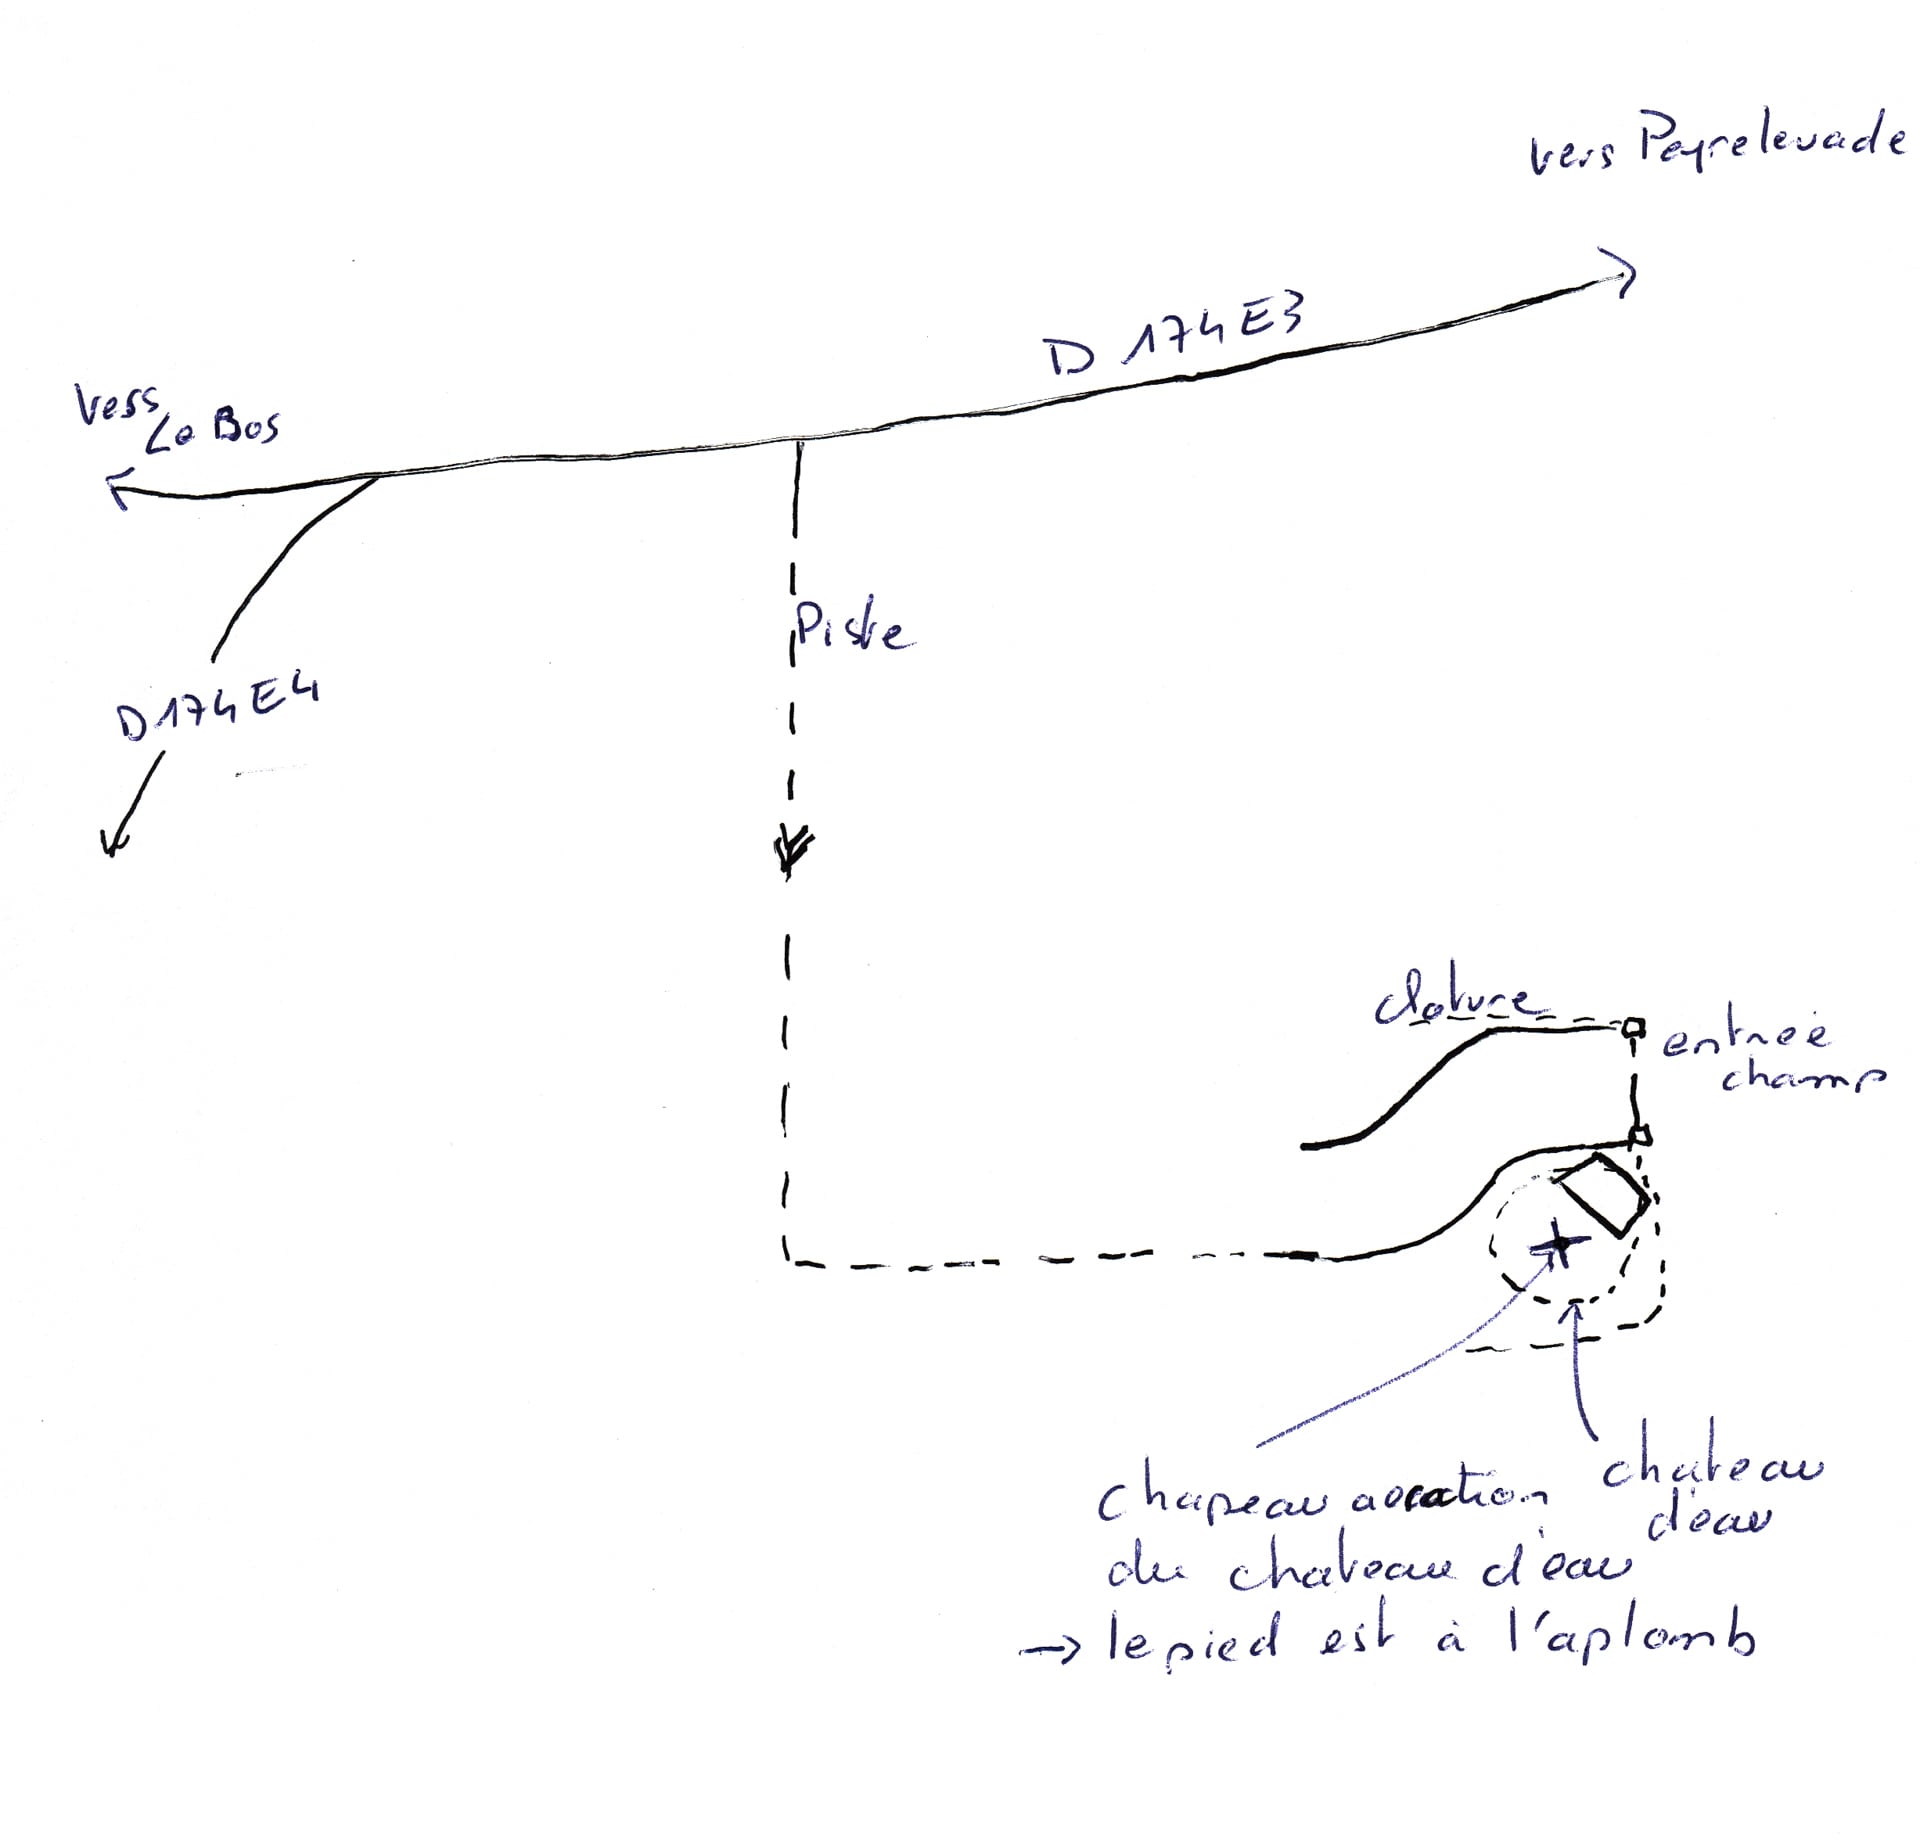 vers Peyrelevade
D 174E3
vers
Le Bos
Piste
D174E4
cloture
entrée
champ
chateau
d'eau
chapeau aération
du chateau d'eau
→ le pied est à l'aplomb